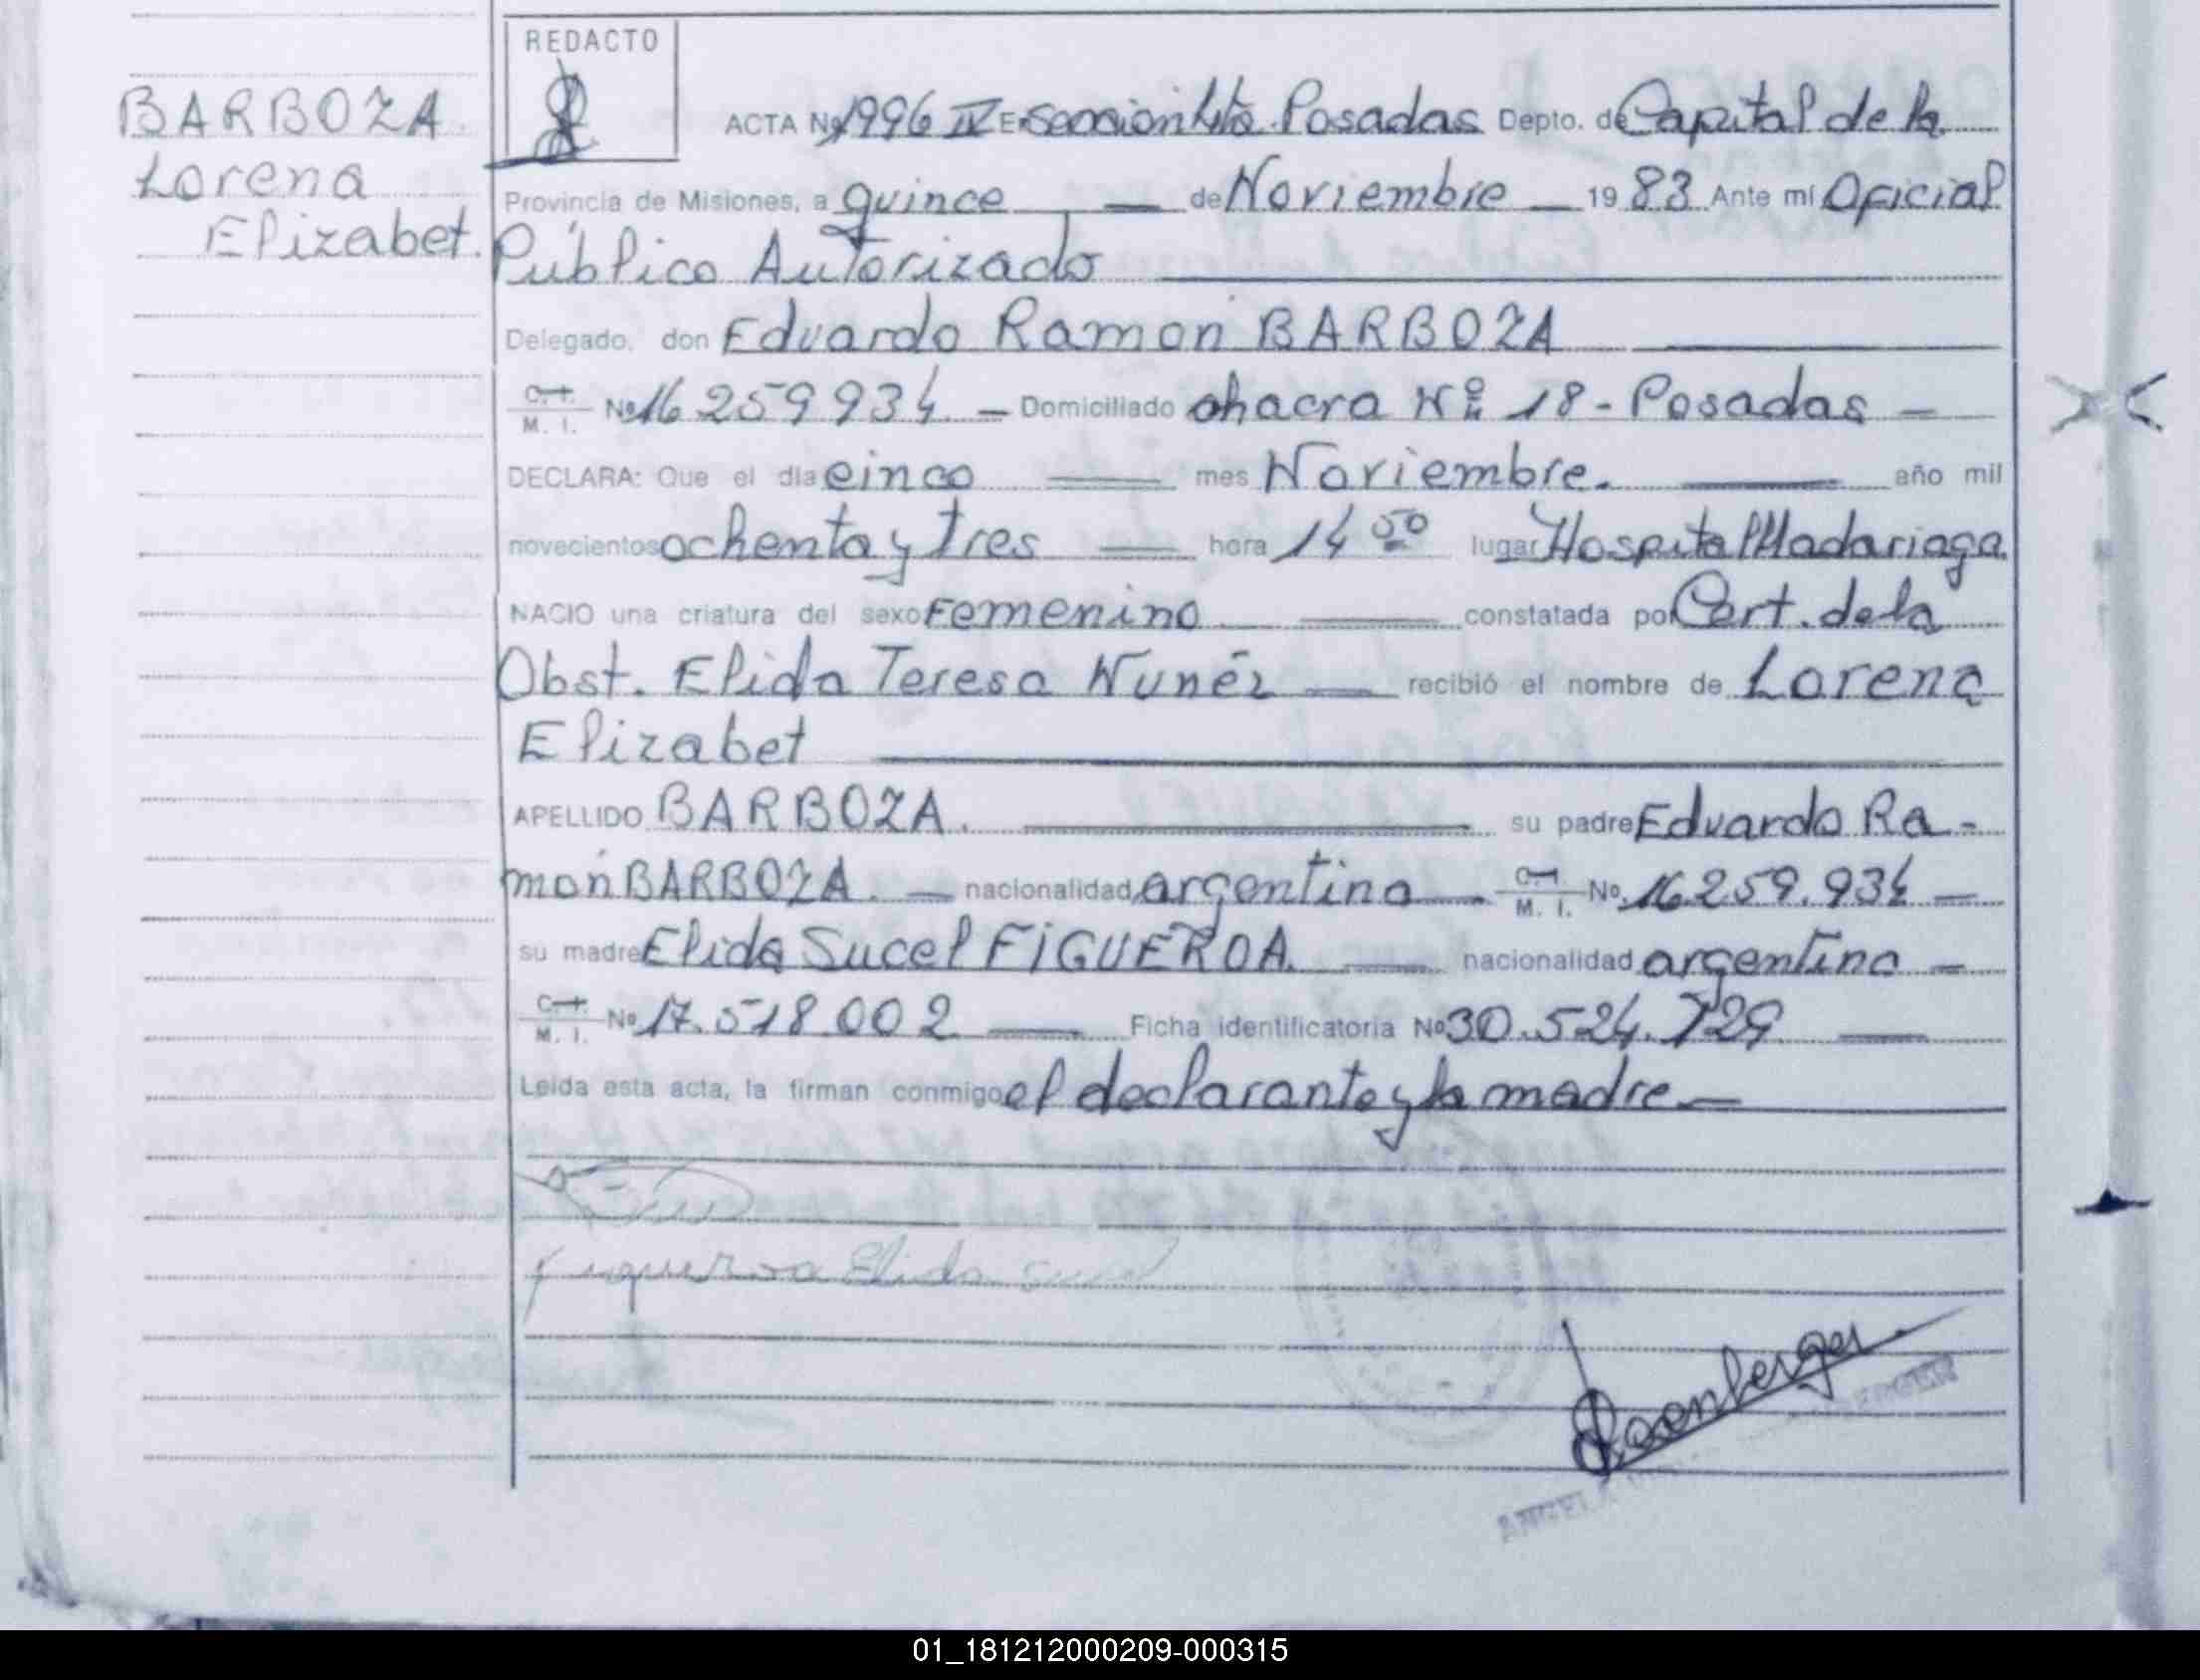 REDACTO
BARBOZA
Lorena
Elizabet.
ACTA Nº 1996 IV En Sección Posadas Depto. de Capital de la
Provincia de Misiones, a quince de Noviembre 1983 Ante mí Oficial
Público Autorizado
Delegado, don Eduardo Ramon BARBOZA
C.I. M. I. Nº 16 259 934 Domiciliado chacra Nº 18 - Posadas
DECLARA: Que el día cinco mes Noviembre. año mil
novecientos ochenta y tres hora 14 50 lugar Hospital Madariaga
NACIO una criatura del sexo Femenino constatada por Cert. de la
Obst. Elida Teresa Nunéz recibió el nombre de Lorena
Elizabet
APELLIDO BARBOZA. su padre Eduardo Ra-
món BARBOZA. nacionalidad argentina C.I. M. I. Nº 16.259.934
su madre Elida Sucel FIGUEROA. nacionalidad argentina
C.I. M. I. Nº 17.518.002 Ficha identificatoria Nº 30.524.729
Leída esta acta, la firman conmigo el declarante y la madre
Figueroa Elida Sucel
01_181212000209-000315